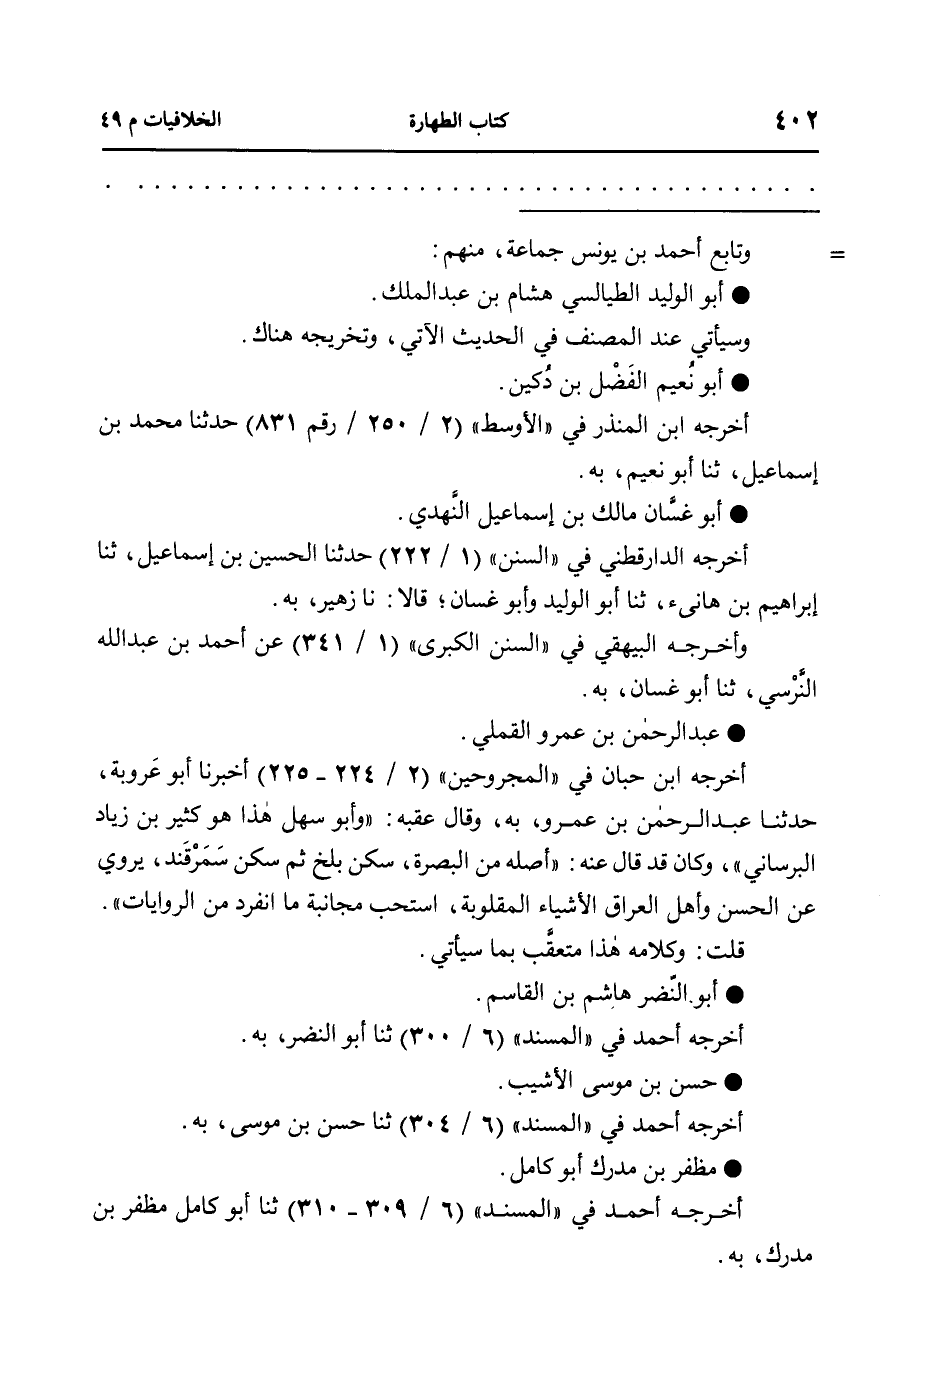 ٤٠٢ كتاب الطهارة الخلافيات م ٤٩
. . . . . . . . . . . . . . . . . . . . . . . . . . . . . . . . . . . . . . . . . .
= وتابع أحمد بن يونس جماعة، منهم:
● أبو الوليد الطيالسي هشام بن عبدالملك.
وسيأتي عند المصنف في الحديث الآتي، وتخريجه هناك.
● أبو نُعيم الفَضْل بن دُكين.
أخرجه ابن المنذر في «الأوسط» (٢ / ٢٥٠ / رقم ٨٣١) حدثنا محمد بن
إسماعيل، ثنا أبو نعيم، به.
● أبو غسَّان مالك بن إسماعيل النَّهدي.
أخرجه الدارقطني في «السنن» (١ / ٢٢٢) حدثنا الحسين بن إسماعيل، ثنا
إبراهيم بن هانىء، ثنا أبو الوليد وأبو غسان؛ قالا: نا زهير، به.
وأخـرجـه البيهقي في «السنن الكبرى» (١ / ٣٤١) عن أحمد بن عبدالله
النَّرْسي، ثنا أبو غسان، به.
● عبدالرحمٰن بن عمرو القملي.
أخرجه ابن حبان في «المجروحين» (٢ / ٢٢٤ ـ ٢٢٥) أخبرنا أبو عَروبة،
حدثنـا عبـدالـرحمٰن بن عمـرو، به، وقال عقبه: «وأبو سهل هٰذا هو كثير بن زياد
البرساني»، وكان قد قال عنه: «أصله من البصرة، سكن بلخ ثم سكن سَمَرْقَند، يروي
عن الحسن وأهل العراق الأشياء المقلوبة، استحب مجانبة ما انفرد من الروايات».
قلت: وكلامه هٰذا متعقَّب بما سيأتي.
● أبو النّضر هاشم بن القاسم.
أخرجه أحمد في «المسند» (٦ / ٣٠٠) ثنا أبو النضر، به.
● حسن بن موسى الأشيب.
أخرجه أحمد في «المسند» (٦ / ٣٠٤) ثنا حسن بن موسى، به.
● مظفر بن مدرك أبو كامل.
أخـرجـه أحمـد في «المسنـد» (٦ / ٣٠٩ ـ ٣١٠) ثنا أبو كامل مظفر بن
مدرك، به.